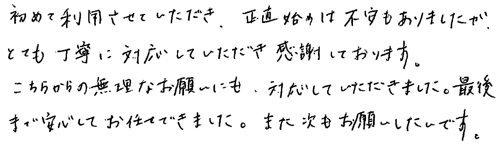 初めて利用させていただき、正直始めは不安もありましたが、
とても丁寧に対応していただき感謝しております。
こちらからの無理なお願いにも、対応していただきました。最後
まで安心してお任せできました。また次もお願いしたいです。